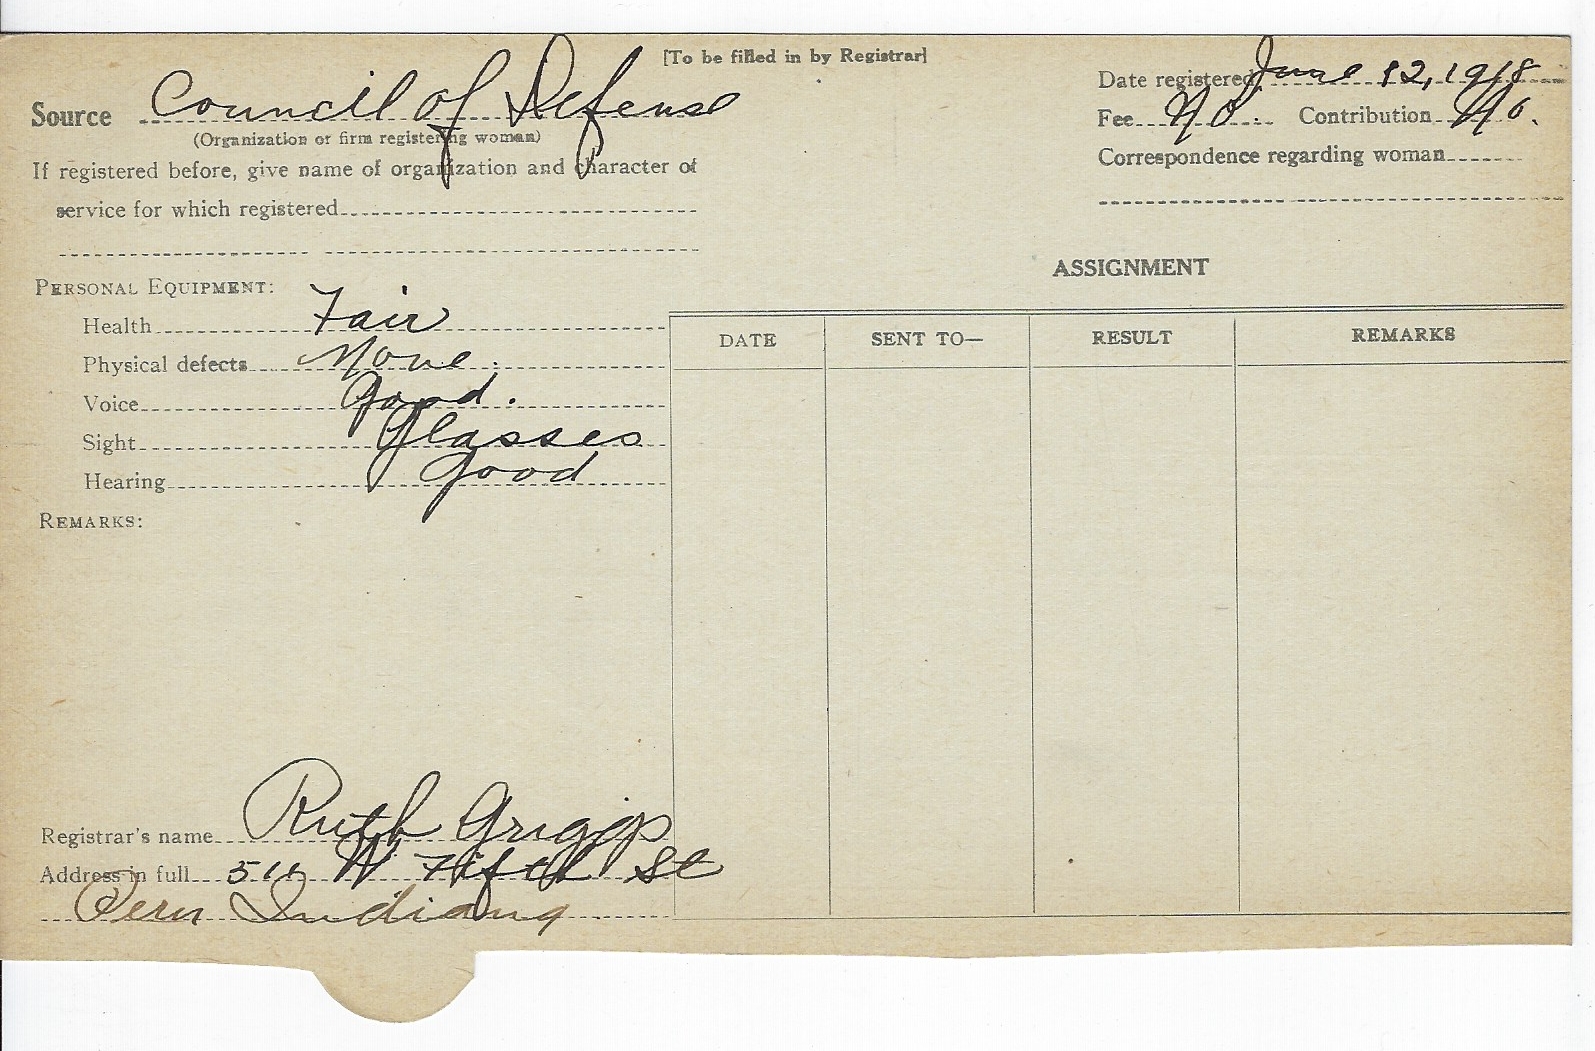 [To be filled in by Registrar]
Source Council of Defense
(Organization or firm registering woman)
If registered before, give name of organization and character of
service for which registered
Date registered June 12, 1918
Fee No. Contribution No.
Correspondence regarding woman
PERSONAL EQUIPMENT:
Health Fair
Physical defects None.
Voice Good.
Sight Glasses
Hearing Good
REMARKS:
ASSIGNMENT
DATE SENT TO— RESULT REMARKS
Registrar's name Ruth Griggs
Address in full 511 W. Fifth St
Peru Indiana